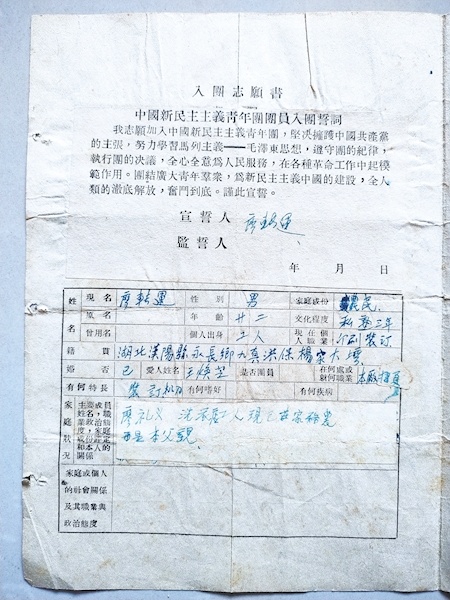 入團志願書
中國新民主主義青年團團員入團誓詞
我志願加入中國新民主主義青年團，堅决擁護中國共產黨
的主張，努力學習馬列主義——毛澤東思想，遵守團的紀律，
執行團的决議，全心全意爲人民服務，在各種革命工作中起模
範作用。團結廣大青年羣衆，爲新民主主義中國的建設，全人
類的澈底解放，奮鬥到底。謹此宣誓。
宣誓人 廖
監誓人
年 月 日
姓名 現名 廖 運 性別 男 家庭成份 農民
原名 年齡 廿二 文化程度 私塾三年
曾用名 個人出身 工人 現在個人職業 印刷裝訂
籍貫 湖北漢陽縣永長鄉九真洪保楊家大塆
婚否 已 愛人姓名 王 芝 是否團員 在何處或財何職業 本廠
有何特長 裝訂 有何嗜好 有何疾病
家庭狀况 主要成員姓名，職業政治態度，家庭 和本人的關係 廖礼 洗 工人現已在家務農
是本父親
家庭或個人
的社會關係
及其職業與
政治態度